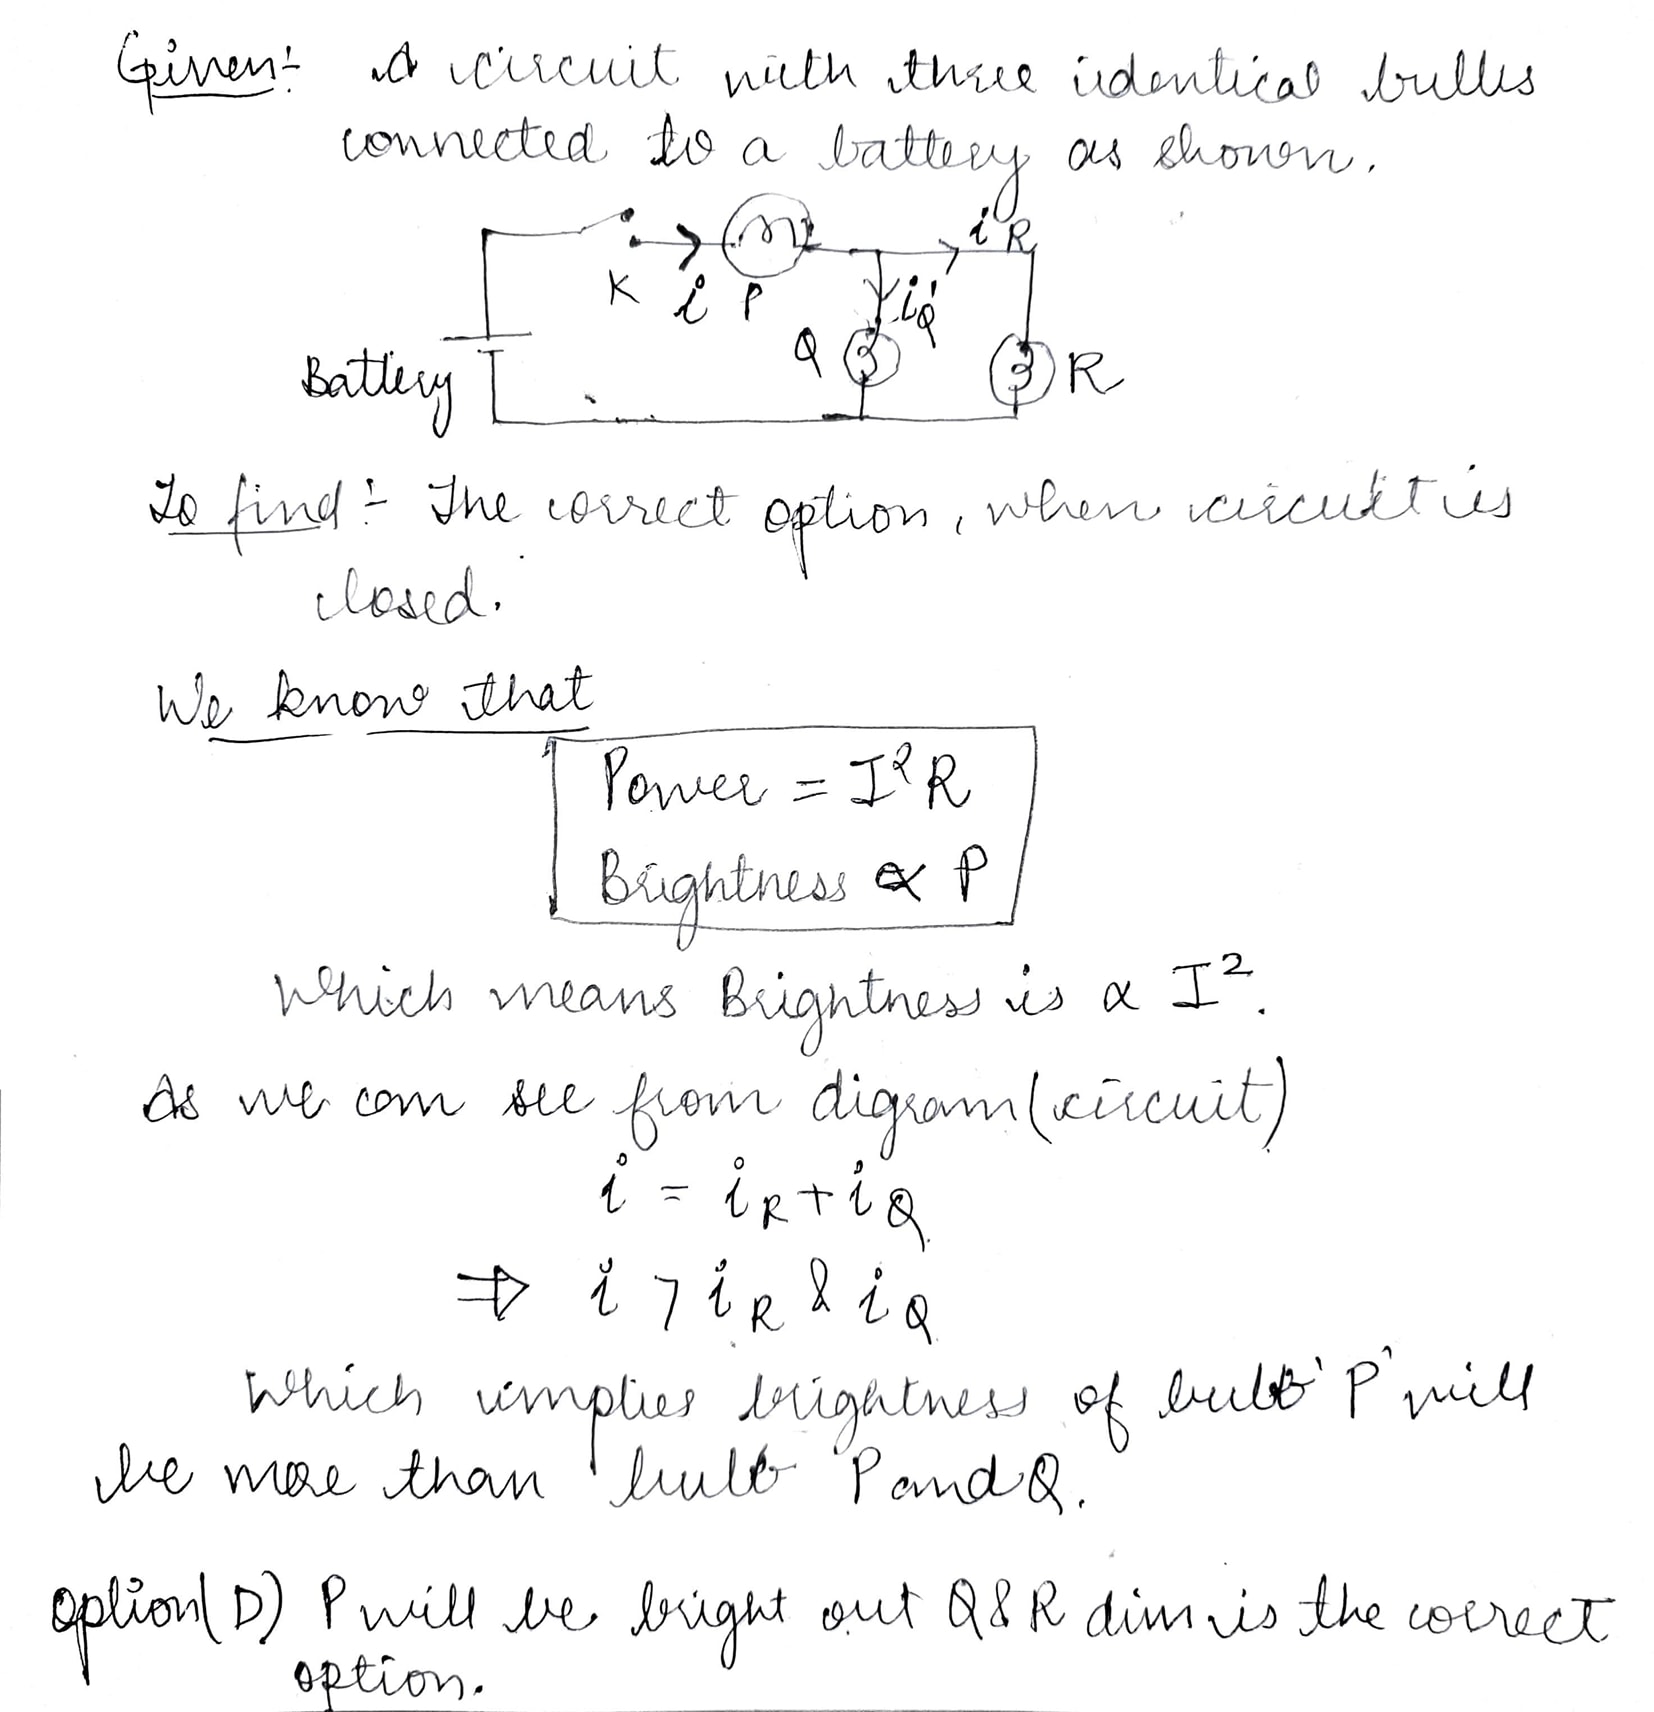 Given:- A circuit with three identical bulbs
connected to a battery as shown.
K i P i R
i'Q
Q R
Battery
To find:- The correct option, when circuit is
closed.
We know that
Power = I²R
Brightness ∝ P
Which means Brightness is ∝ I².
As we can see from digram (circuit)
i = iR + iQ
⇒ i > iR & iQ
Which implies brightness of bulb 'P' will
be more than bulb P and Q.
Option (D) P will be bright out Q & R dim is the correct
option.